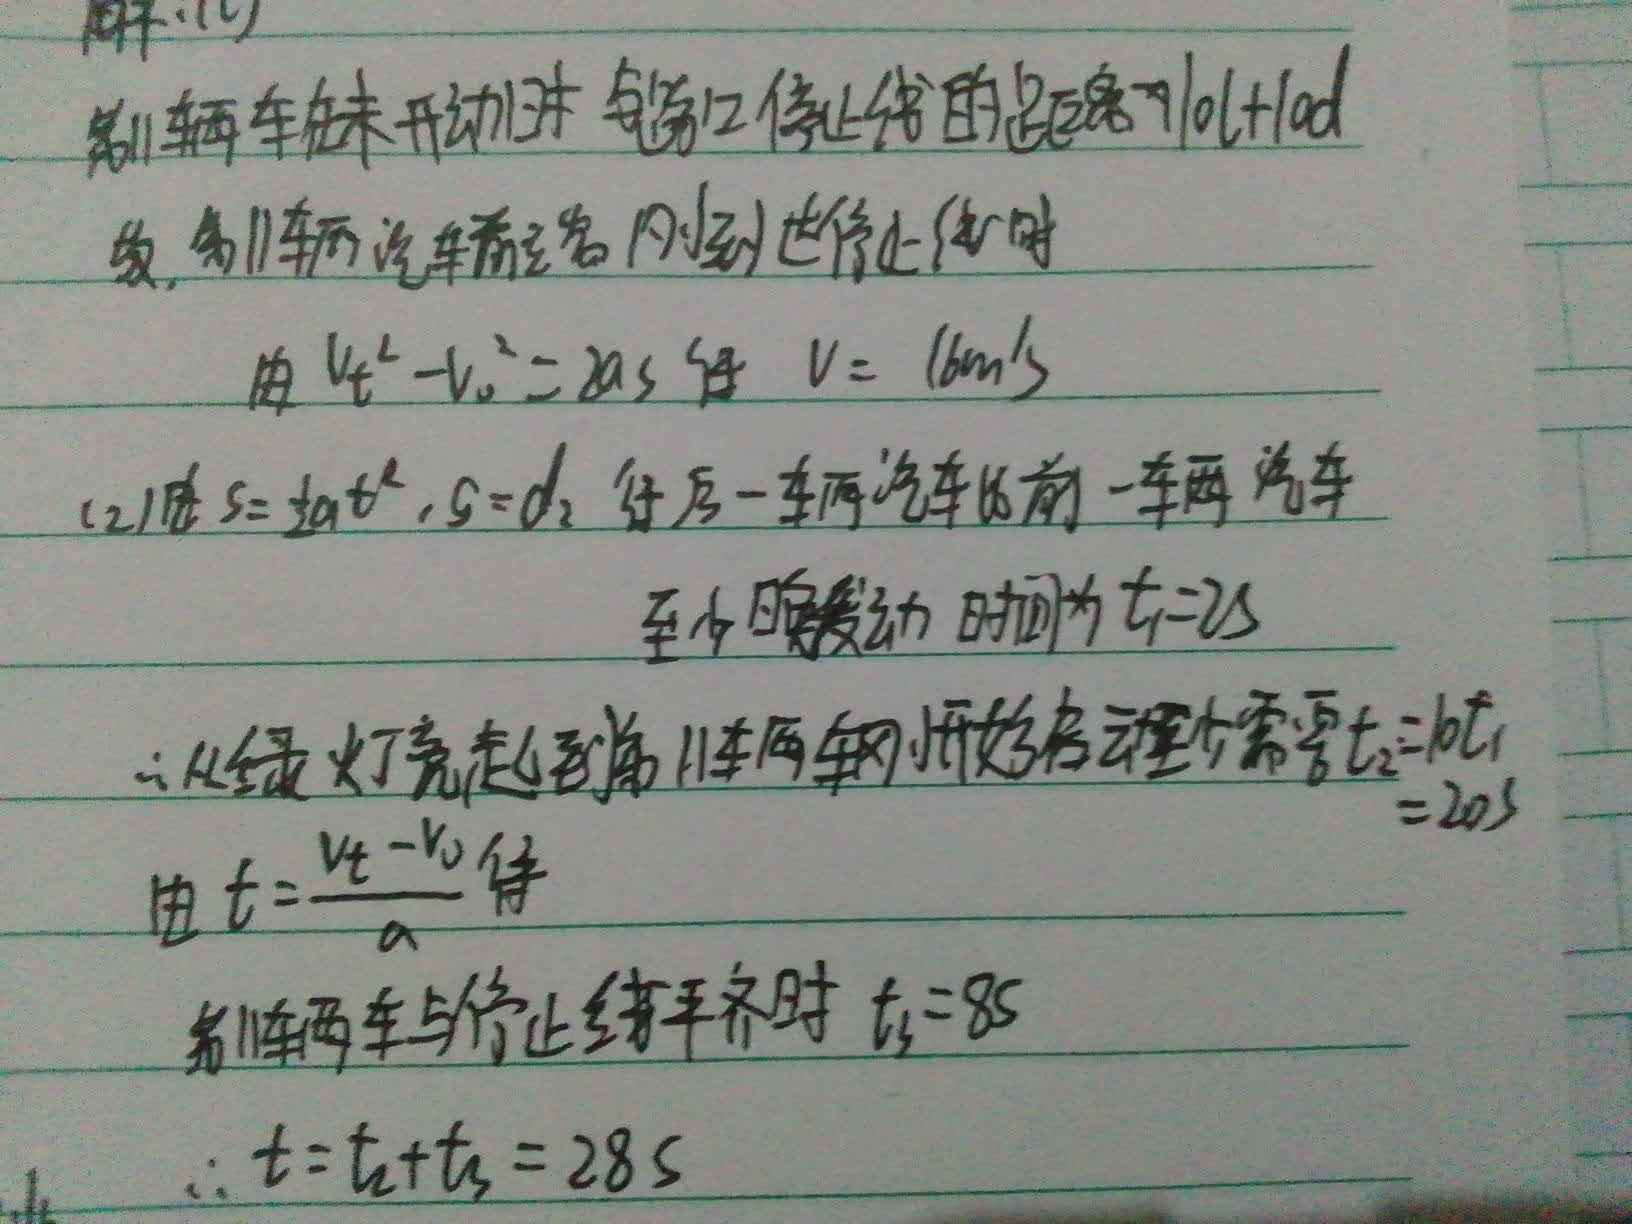 解:(1)
第11辆车在未开动时与路口停止线的距离为10l+10d
故,第11辆汽车前端刚到达停止线时
由 Vt²-V₀²=2as 得 V= 16m/s
(2)由 S=½at²,S=d₂ 得后一辆汽车比前一辆汽车
至少晚发动 时间为 t₁=2s
∴从绿灯亮起到第11辆车刚开始启动至少需要t₂=10t₁
=20s
由 t=(Vt-V₀)/a 得
第11辆车与停止线平齐时 t₃=8s
∴ t=t₂+t₃=28s